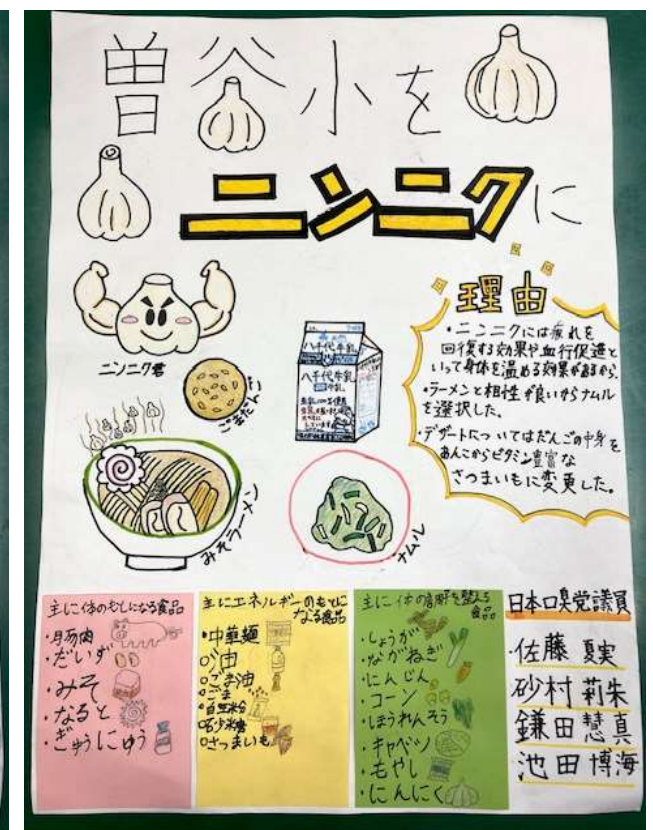 曽谷小を
ニンニクに
理由
・ニンニクには疲れを
回復する効果や血行促進と
いって身体を温める効果があるから。
・ラーメンと相性が良いからナムル
を選択した。
・デザートについてはだんごの中身を
あんこからビタミン豊富な
さつまいもに変更した。
ニンニク君
ごまだんご
八千代牛乳
八千代牛乳
みそラーメン
ナムル
主に体のもとになる食品
・豚肉
・だいず
・みそ
・なると
・ぎゅうにゅう
主にエネルギーのもとに
なる食品
・中華麺
○油
○ごま油
○ごま
○白玉粉
○砂糖
○さつまいも
主に体の調子を整える
食品
・しょうが
・ながねぎ
・にんじん
・コーン
・ほうれんそう
・キャベツ
・もやし
・にんにく
日本口臭党議員
・佐藤 夏実
砂村 莉朱
鎌田 慧真
池田 博海